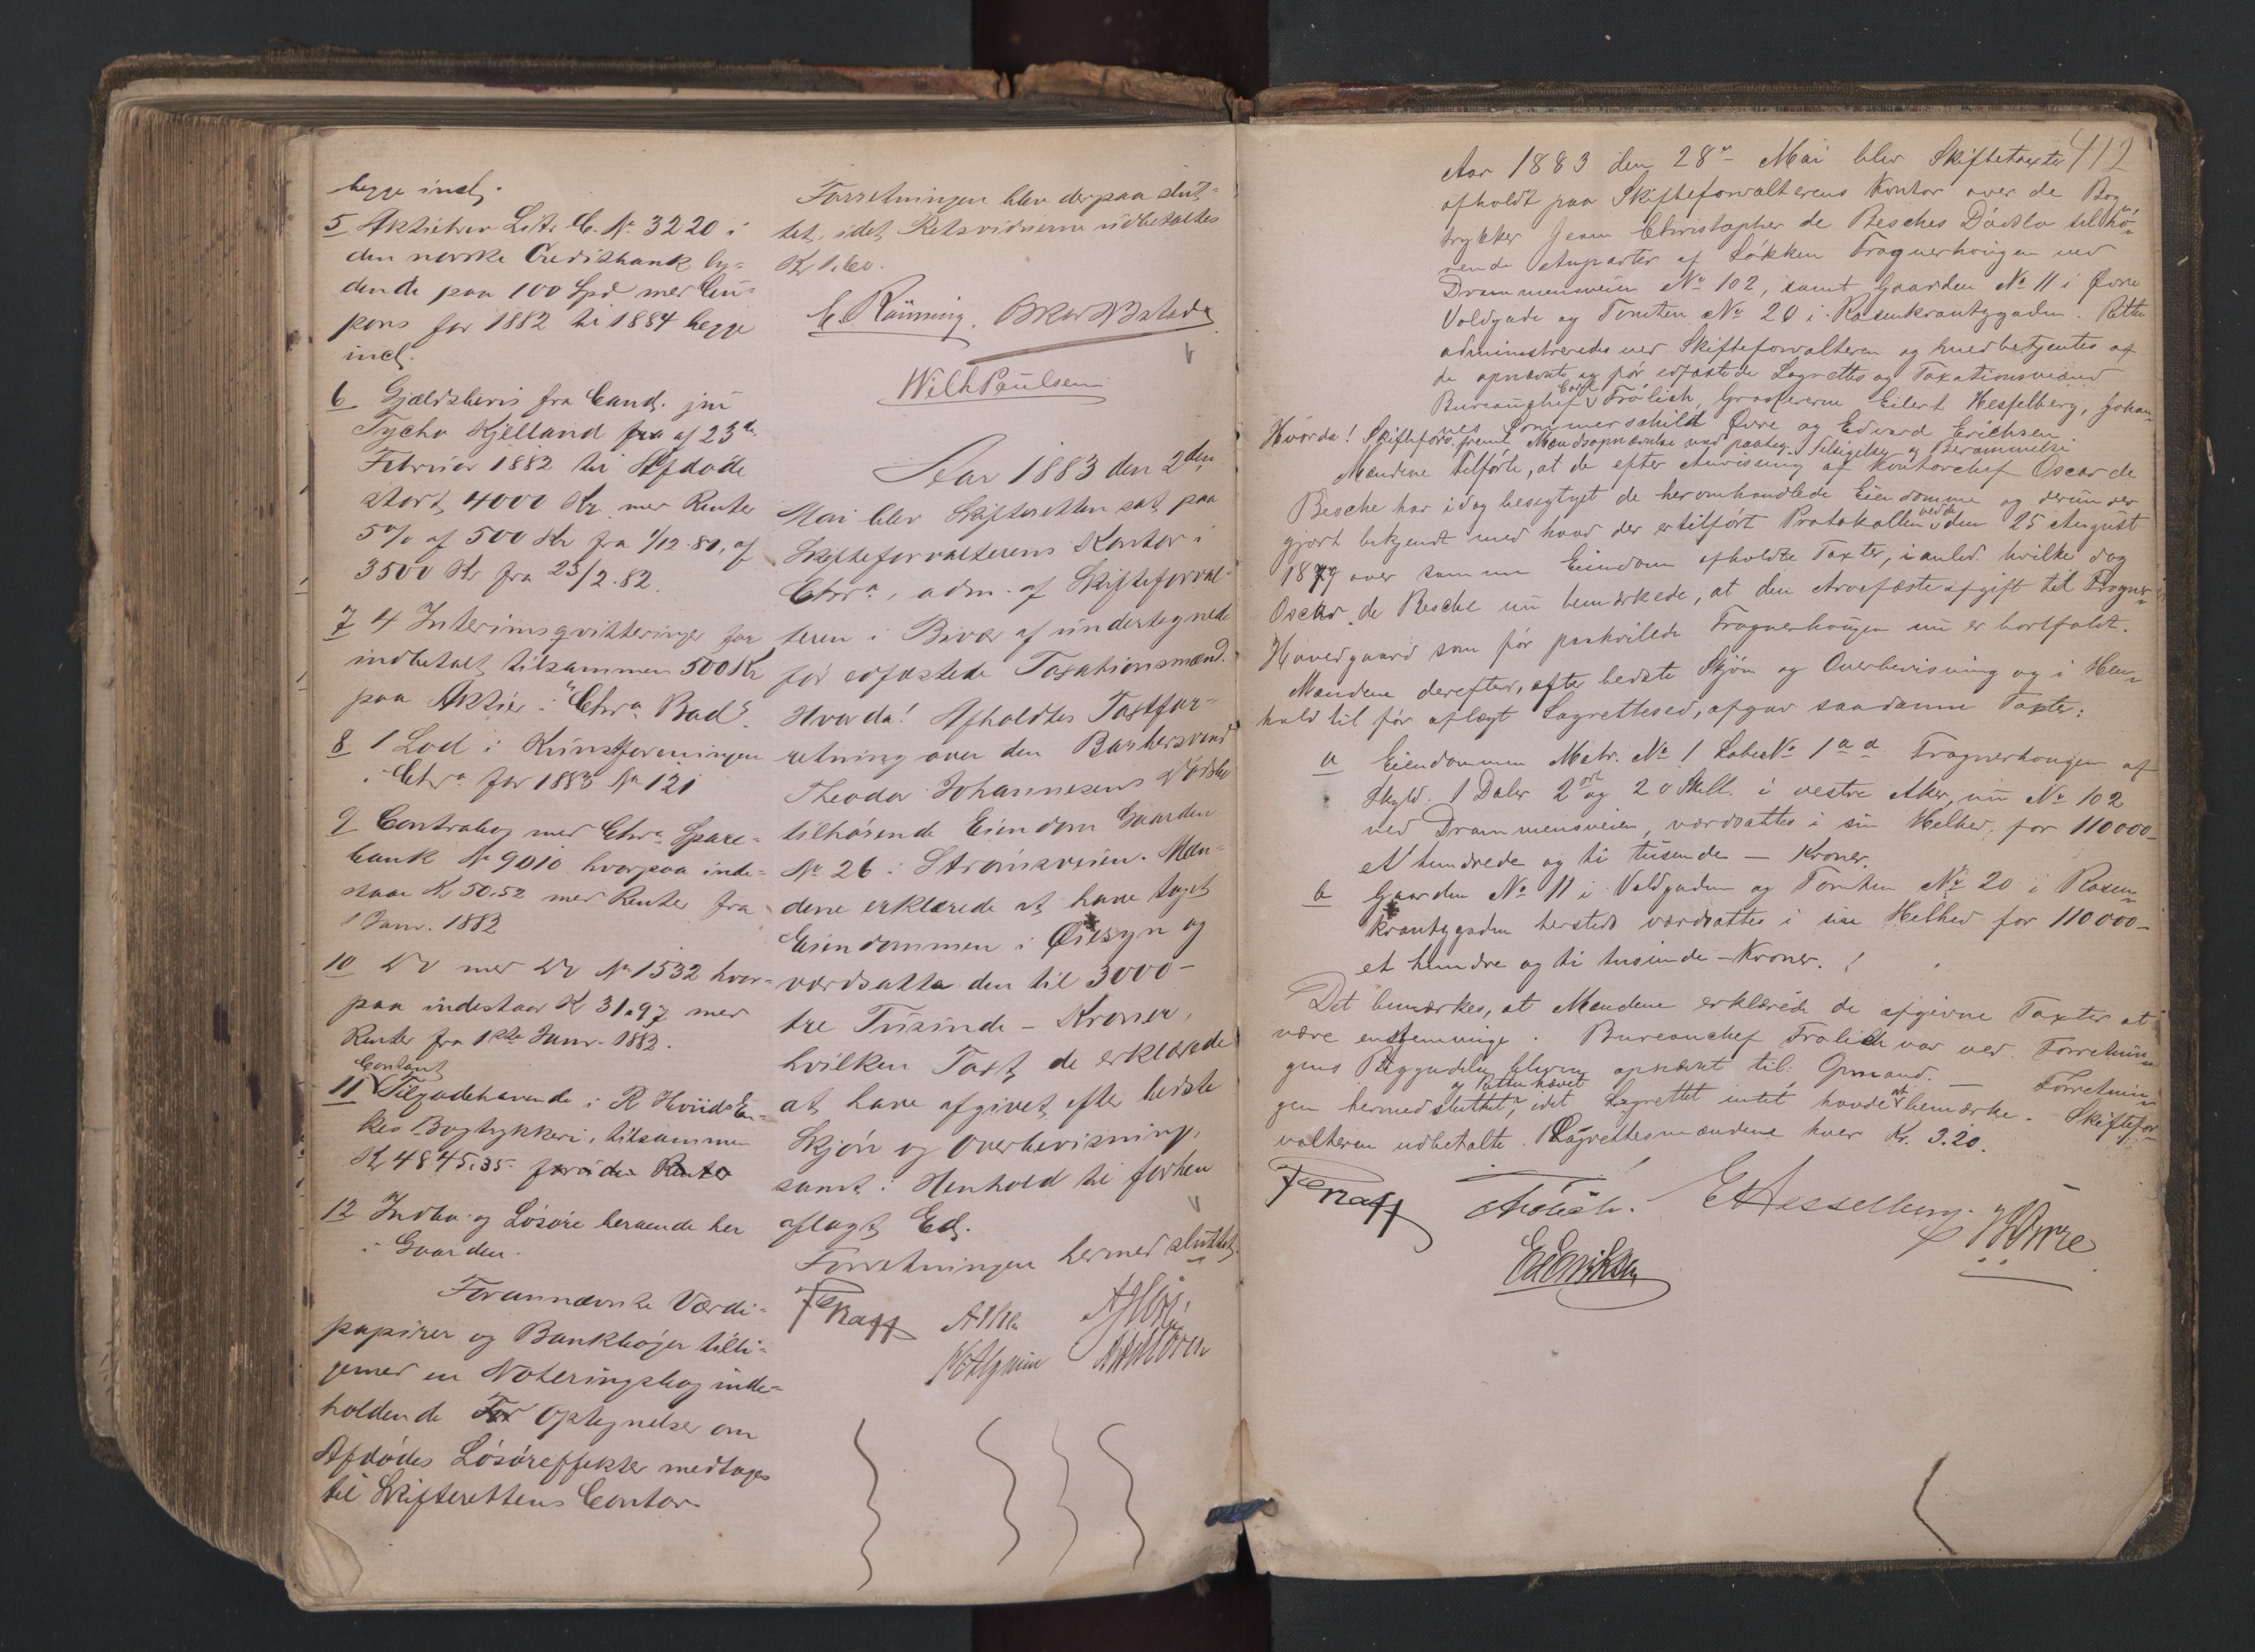 begge incl.
5 Aktiebrev Litr. C. No 3220 i
den norske Creditbank ly-
dende paa 100 Spd med Cou-
pons for 1882 til 1884 begge
incl.
6 Gjældsbevis fra Cand. jur
Tycho Kjelland fra af 23de
Februar 1882 til Afdøde
stort 4000 Kr. med Renter
5% af 500 Kr fra 1/12.81, af
3500 Kr fra 23/2.82.
7 4 Interimsqvitteringer for
indbetalt tilsammen 500 Kr
paa Aktier i "Chra Bad".
8 1 Lod i Kunstforeningen
i Chra for 1883 No 121
9 Contrabog med Chra Spare-
bank No 9010 hvorpaa inde-
staar Kr 50.52 med Renter fra
1 Janr. 1882
10 Do med Do No 1532 hvor-
paa indestaar Kr 31.97 med
Renter fra 1ste Janr. 1883.
Contant
11 Tilgodehavende i R Hviids En-
kes Bogtrykkeri, tilsammen
Kr 4845.35 foruden Renter
12 Indbo og Løsøre beroende her
i Gaarden.
Forannævnte Værdi-
papirer og Bankbøger tilli-
gemed en Noteringsbog inde-
holdende For Optegnelser om
Afdødes Løsøreffekter medtoges
til Skifterettens Contor.
Forretningen blev derpaa slut-
tet, idet Retsvidnerne udbetaltes
Kr 1.60.
E. Rönning. Oskar Ebstedt
Wilh Paulsen
Aar 1883 den 2den
Mai blev Skifteretten sat paa
Skifteforvalterens Kontor i
Chra, adm. af Skifteforval-
teren i Bivær af undertegnede
før edfæstede Taxationsmænd.
Hvorda! Afholdtes Taxtfor-
retning over den Barbersvend
Theodor Johannesens Dødsbo
tilhørende Eiendom Gaarden
No 26 i Strømsveien. Mæn-
dene erklærede at have taget
Eiendommen i Øiesyn og
værdsatte den til 3000-
tre Tusinde - Kroner,
hvilken Taxt de erklærede
at have afgivet efter bedste
Skjøn og Overbevisning,
samt i Henhold til forhen
aflagt Ed.
Forretningen hermed sluttet.
F Knaff
412
Aar 1883 den 28de Mai blev Skiftetaxter
afholdt paa Skifteforvalterens Kontor over de Bog-
trykker Jean Christopher de Besches Dødsbo tilhø-
rende Anparter af Løkken Frognerhougen ved
Drammensveien No 102, samt Gaarden No 11 i Øvre
Voldgade og Tomten No 20 i Rosenkrantzgaden. Retten
administreredes ved Skifteforvalteren og medbetjentes af
de opnævnte og før edfæstede Lagrettes og Taxationsmænd
Bureauchef Carl Frölich, Grosfererne Eilert Hesselberg, Johan-
nes Sommerschild Øvre og Edvard Erichsen.
Hvorda! Skifteforv. freml. Mandsopnævnelse med paateg. Tilsigelse og Berammelse.
Mændene tilførte, at de efter Anvisning af Kontorchef Oscar de
Besche har idag besigtiget de heromhandlede Eiendomme og derunder
gjort bekjendt med hvad der er tilført Protokollen ved de den 25 August
1879 over samme Eiendom afholdte Taxter, i anled. hvilke dog
Oscar de Besche nu bemærkede, at den Arvefæsteafgift til Frogner
Hovedgaard som før paahvilede Frognerhougen nu er bortfaldt.
Mændene derefter, efter bedste Skjøn og Overbevisning og i Hen-
hold til før aflagt Lagrettesed, afgav saadanne Taxter:
a Eiendommen Matr. No 1 LøbeNo 1 a d Frognerhougen af
Skyld. 1 Daler 2 ort og 20 Skill. i vestre Aker, nu No 102
ved Drammensveien, værdsattes i sin Helhed, for 110000-
et hundrede og ti tusende - Kroner.
b Gaarden No 11 i Voldgaden og Tomten No 20 i Rosen-
krantzgaden hersteds værdsattes i sin Helhed for 110000-
et hundre og ti tusinde - Kroner.
Det bemærkes, at Mændene erklærede de afgivne Taxter at
være enstemmige. Bureauchef Frölich var ved Forretnin-
gens Begyndelse bleven opnævnt til Ormand. — Forretnin-
gen hermed sluttet, og Retten hævet idet Lagrettet intet havde at bemærke. Skiftefor-
valteren udbetalte Lagrettesmændene hver Kr. 3.20.
F Knaff Frölich. E Hesselberg. J S Øvre
Ed Eriksen